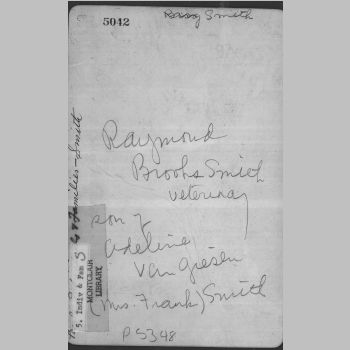 5042
Smith
Raymond
Brooks Smith
veterinary
son of
Adeline
Van Giesen
(Mrs. Frank) Smith
P5348
& Families - Smith
5. Indiv & Fam S
MONTCLAIR
LIBRARY